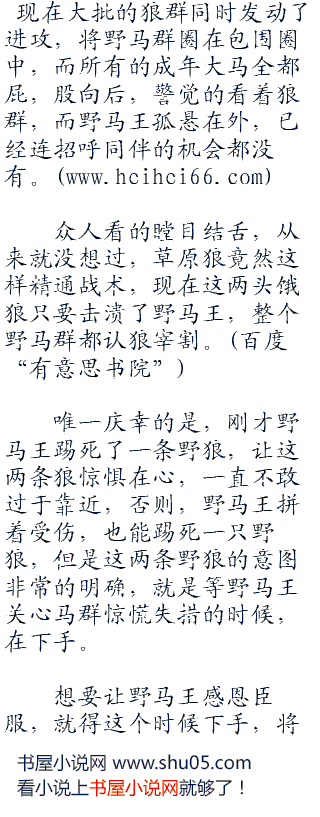 现在大批的狼群同时发动了
进攻，将野马群圈在包围圈
中，而所有的成年大马全都
屁，股向后，警觉的看着狼
群，而野马王孤悬在外，已
经连招呼同伴的机会都没
有。(www.hcihci66.com)
众人看的瞠目结舌，从
来就没想过，草原狼竟然这
样精通战术，现在这两头饿
狼只要击溃了野马王，整个
野马群都认狼宰割。(百度
“有意思书院”)
唯一庆幸的是，刚才野
马王踢死了一条野狼，让这
两条狼惊惧在心，一直不敢
过于靠近，否则，野马王拼
着受伤，也能踢死一只野
狼，但是这两条野狼的意图
非常的明确，就是等野马王
关心马群惊慌失措的时候，
在下手。
想要让野马王感恩臣
服，就得这个时候下手，将
书屋小说网 www.shu05.com
看小说上书屋小说网就够了！